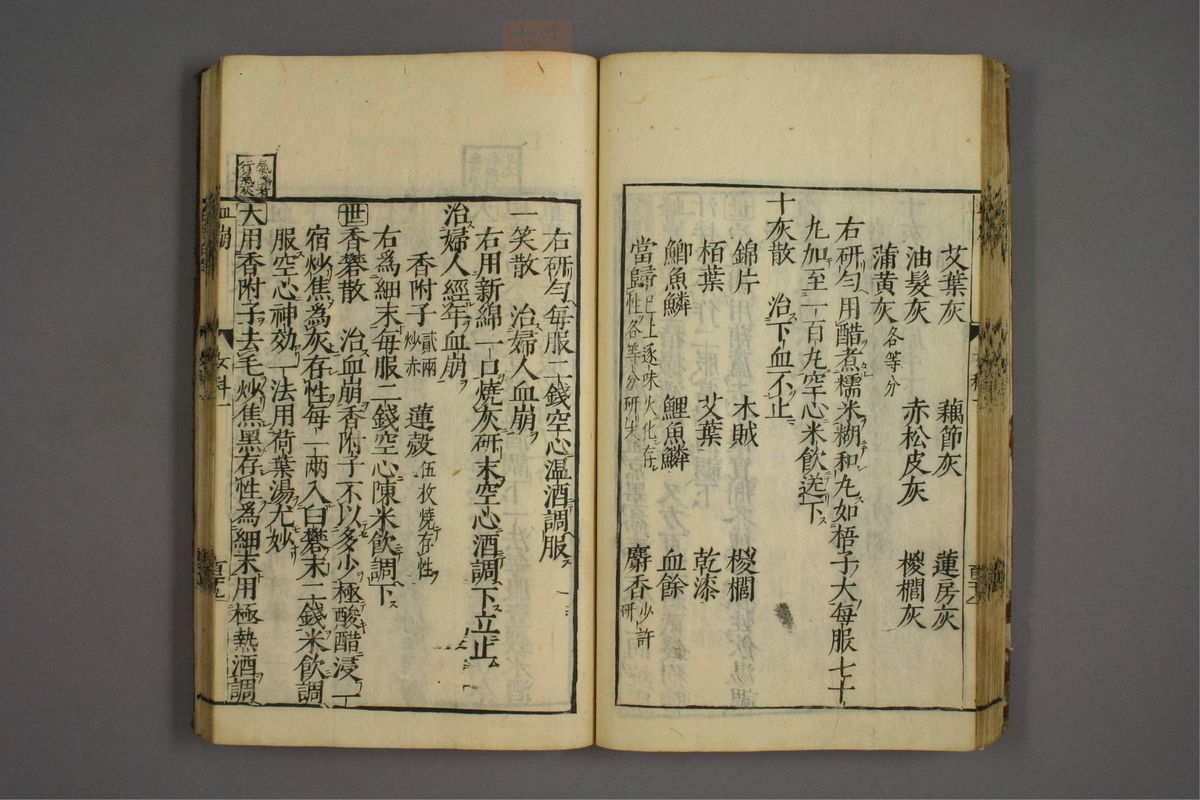 艾葉灰 藕節灰 蓮房灰
油髮灰 赤松皮灰 椶櫚灰
蒲黃灰 各等分
右研勻用醋煮糯米糊和丸如梧子大每服七十
丸加至一百丸空心米飲送下
十灰散 治下血不止
錦片 木賊 椶櫚
栢葉 艾葉 乾漆
鯽魚鱗 鯉魚鱗 血餘
當歸 已上逐味火化存性各等分研末 麝香 少許研
右研勻每服二錢空心温酒調服
一笑散 治婦人血崩
右用新綿一口燒灰研末空心酒調下立止
治婦人經年血崩
香附子 貳兩炒赤 蓮殼 伍枚燒存性
右爲細末每服二錢空心陳米飲調下
世香礬散 治血崩香附子不以多少極酸醋浸一
宿炒焦爲灰存性每一兩入白礬末一錢米飲調
服空心神効一法用荷葉湯尤妙
大用香附子去毛炒焦黑存性爲細末用極熱酒調
血崩 女科一